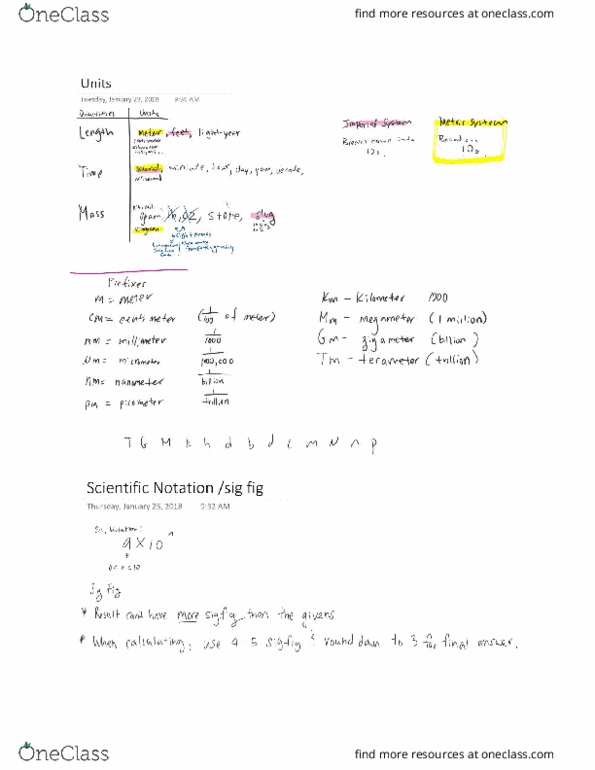 OneClass
find more resources at oneclass.com
Units
Tuesday, January 23, 2018
Quantities Units
Length Meter, feet, light-year
Imperial System
Metric System
Based on 10s.
Time second, minute, hour, day, year, decade,
Mass gram lb, oz, stone, slug
kilogram
Prefixes
m = meter
cm = centimeter (1/100 of meter)
mm = millimeter 1/1000
nm = nanometer 1/billion
pm = picometer 1/trillion
Km - Kilometer 1000
Mm - megameter (1 million)
Gm - gigameter (billion)
Tm - terameter (trillion)
T G M k h d b d c m N n p
Scientific Notation /sig fig
Thursday, January 25, 2018 9:32 AM
Sci. Notation:
Sig Fig
* Result can't have more sigfig than the givens
* When calculating, use 4 5 sigfig & round down to 3 for final answer.
OneClass
find more resources at oneclass.com